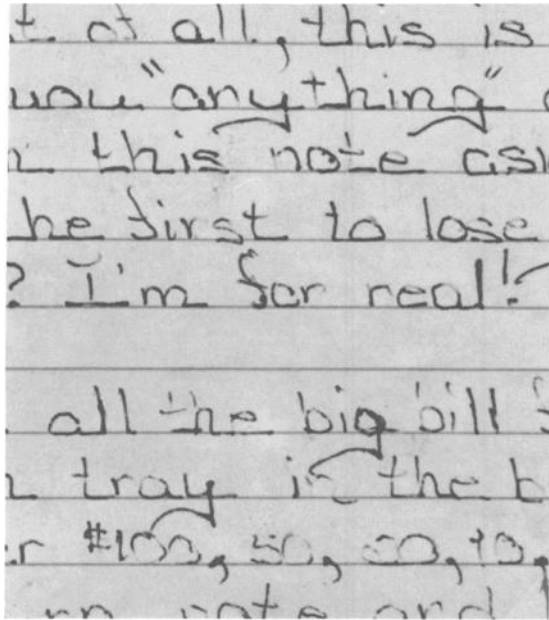 t of all, this is
you "anything"
this note ask
he first to lose
? I'm for real!
all the big bill
tray in the b
r $100, 50, 20, 10,
rn note and